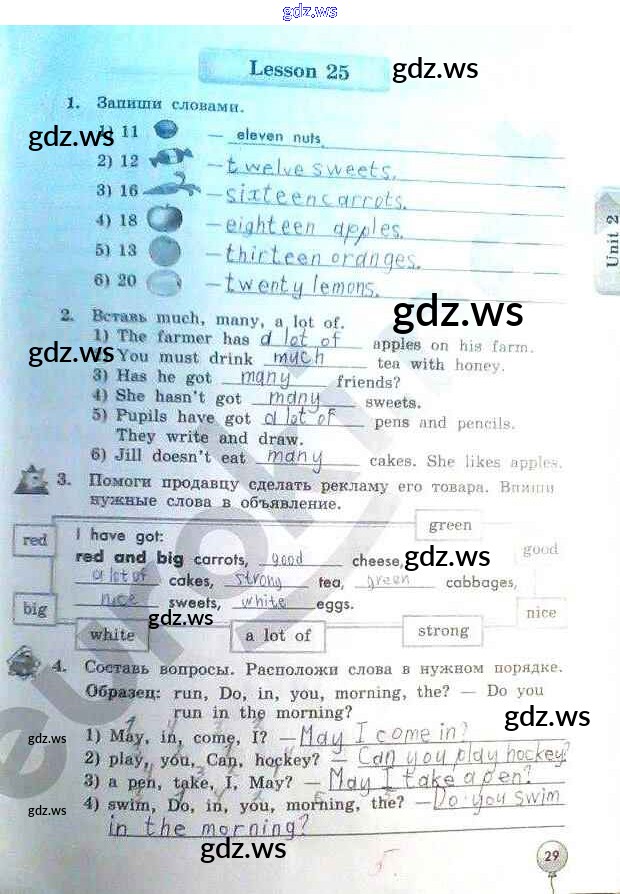 gdz.ws
Lesson 25
gdz.ws
1. Запиши словами.
gdz.ws
1) 11 — eleven nuts.
2) 12 — twelve sweets.
3) 16 — sixteen carrots.
4) 18 — eighteen apples.
5) 13 — thirteen oranges.
6) 20 — twenty lemons.
Unit 2
2. Вставь much, many, a lot of.
gdz.ws
1) The farmer has a lot of apples on his farm.
gdz.ws
2) You must drink much tea with honey.
3) Has he got many friends?
4) She hasn't got many sweets.
5) Pupils have got a lot of pens and pencils.
They write and draw.
6) Jill doesn't eat many cakes. She likes apples.
3. Помоги продавцу сделать рекламу его товара. Впиши
нужные слова в объявление.
green
red
good
I have got:
red and big carrots, good cheese,
gdz.ws
a lot of cakes, strong tea, green cabbages,
nice sweets, white eggs.
gdz.ws
big
nice
white
a lot of
strong
4. Составь вопросы. Расположи слова в нужном порядке.
Образец: run, Do, in, you, morning, the? — Do you
run in the morning?
gdz.ws
1) May, in, come, I? — May I come in?
gdz.ws
2) play, you, Can, hockey? — Can you play hockey?
3) a pen, take, I, May? — May I take a pen?
4) swim, Do, in, you, morning, the? — Do you swim
gdz.ws
gdz.ws
in the morning?
gdz.ws
5.
29
eurokinya